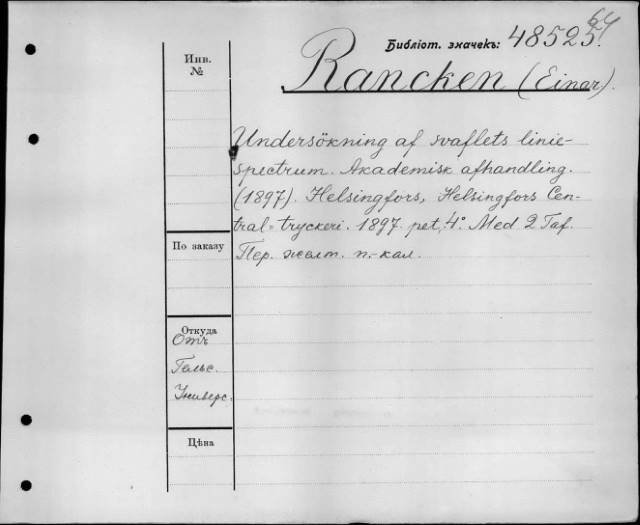 64
Библіот. значекъ: 48525.
Инв.
№
Rancken (Einar).
Undersökning af svaflets linie-
spectrum. Akademisk afhandling.
(1897). Helsingfors, Helsingfors Cen-
tral-tryckeri. 1897. pet. 4° Med 2 Taf.
По заказу
Пер. желт. п.-кал.
Откуда
Отъ
Гельс.
Универс.
Цѣна